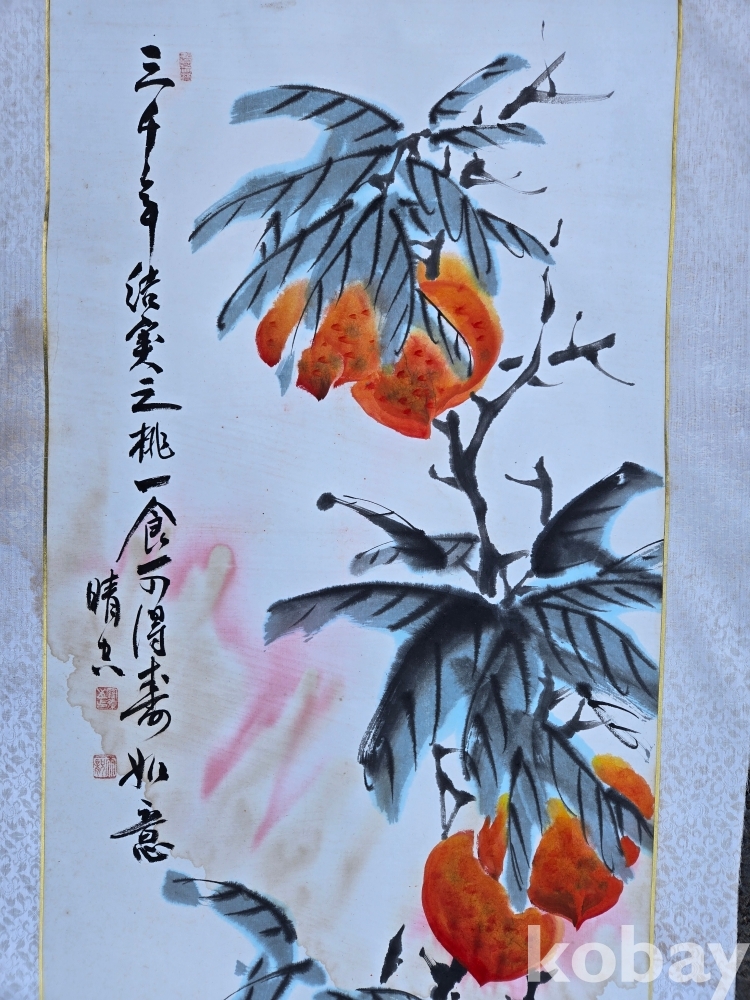 三千年結實之桃一食可得壽如意
晴
kobay